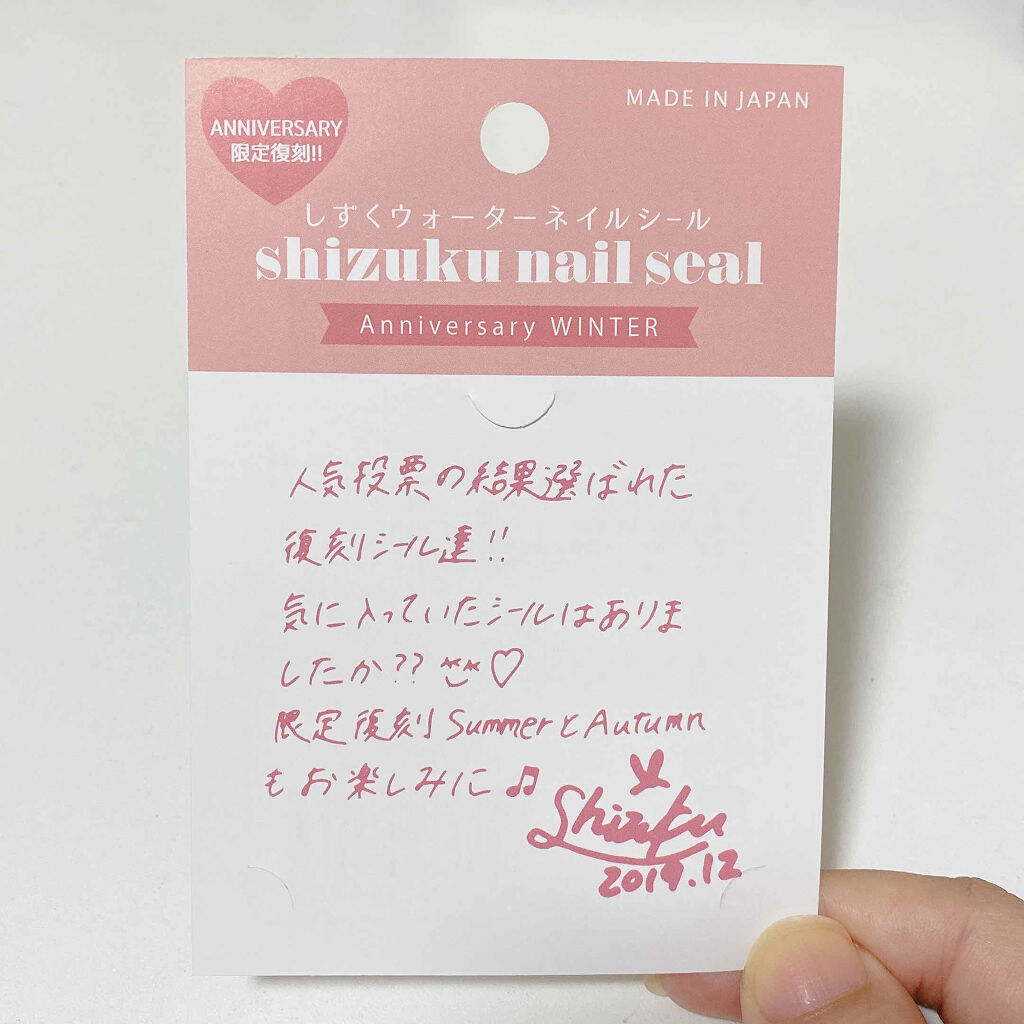 ANNIVERSARY
限定復刻!!
MADE IN JAPAN
しずくウォーターネイルシール
shizuku nail seal
Anniversary WINTER
人気投票の結果選ばれた
復刻シール達!!
気に入っていたシールはありま
したか??♡
限定復刻SummerとAutumn
もお楽しみに♫
Shizuku
2019.12